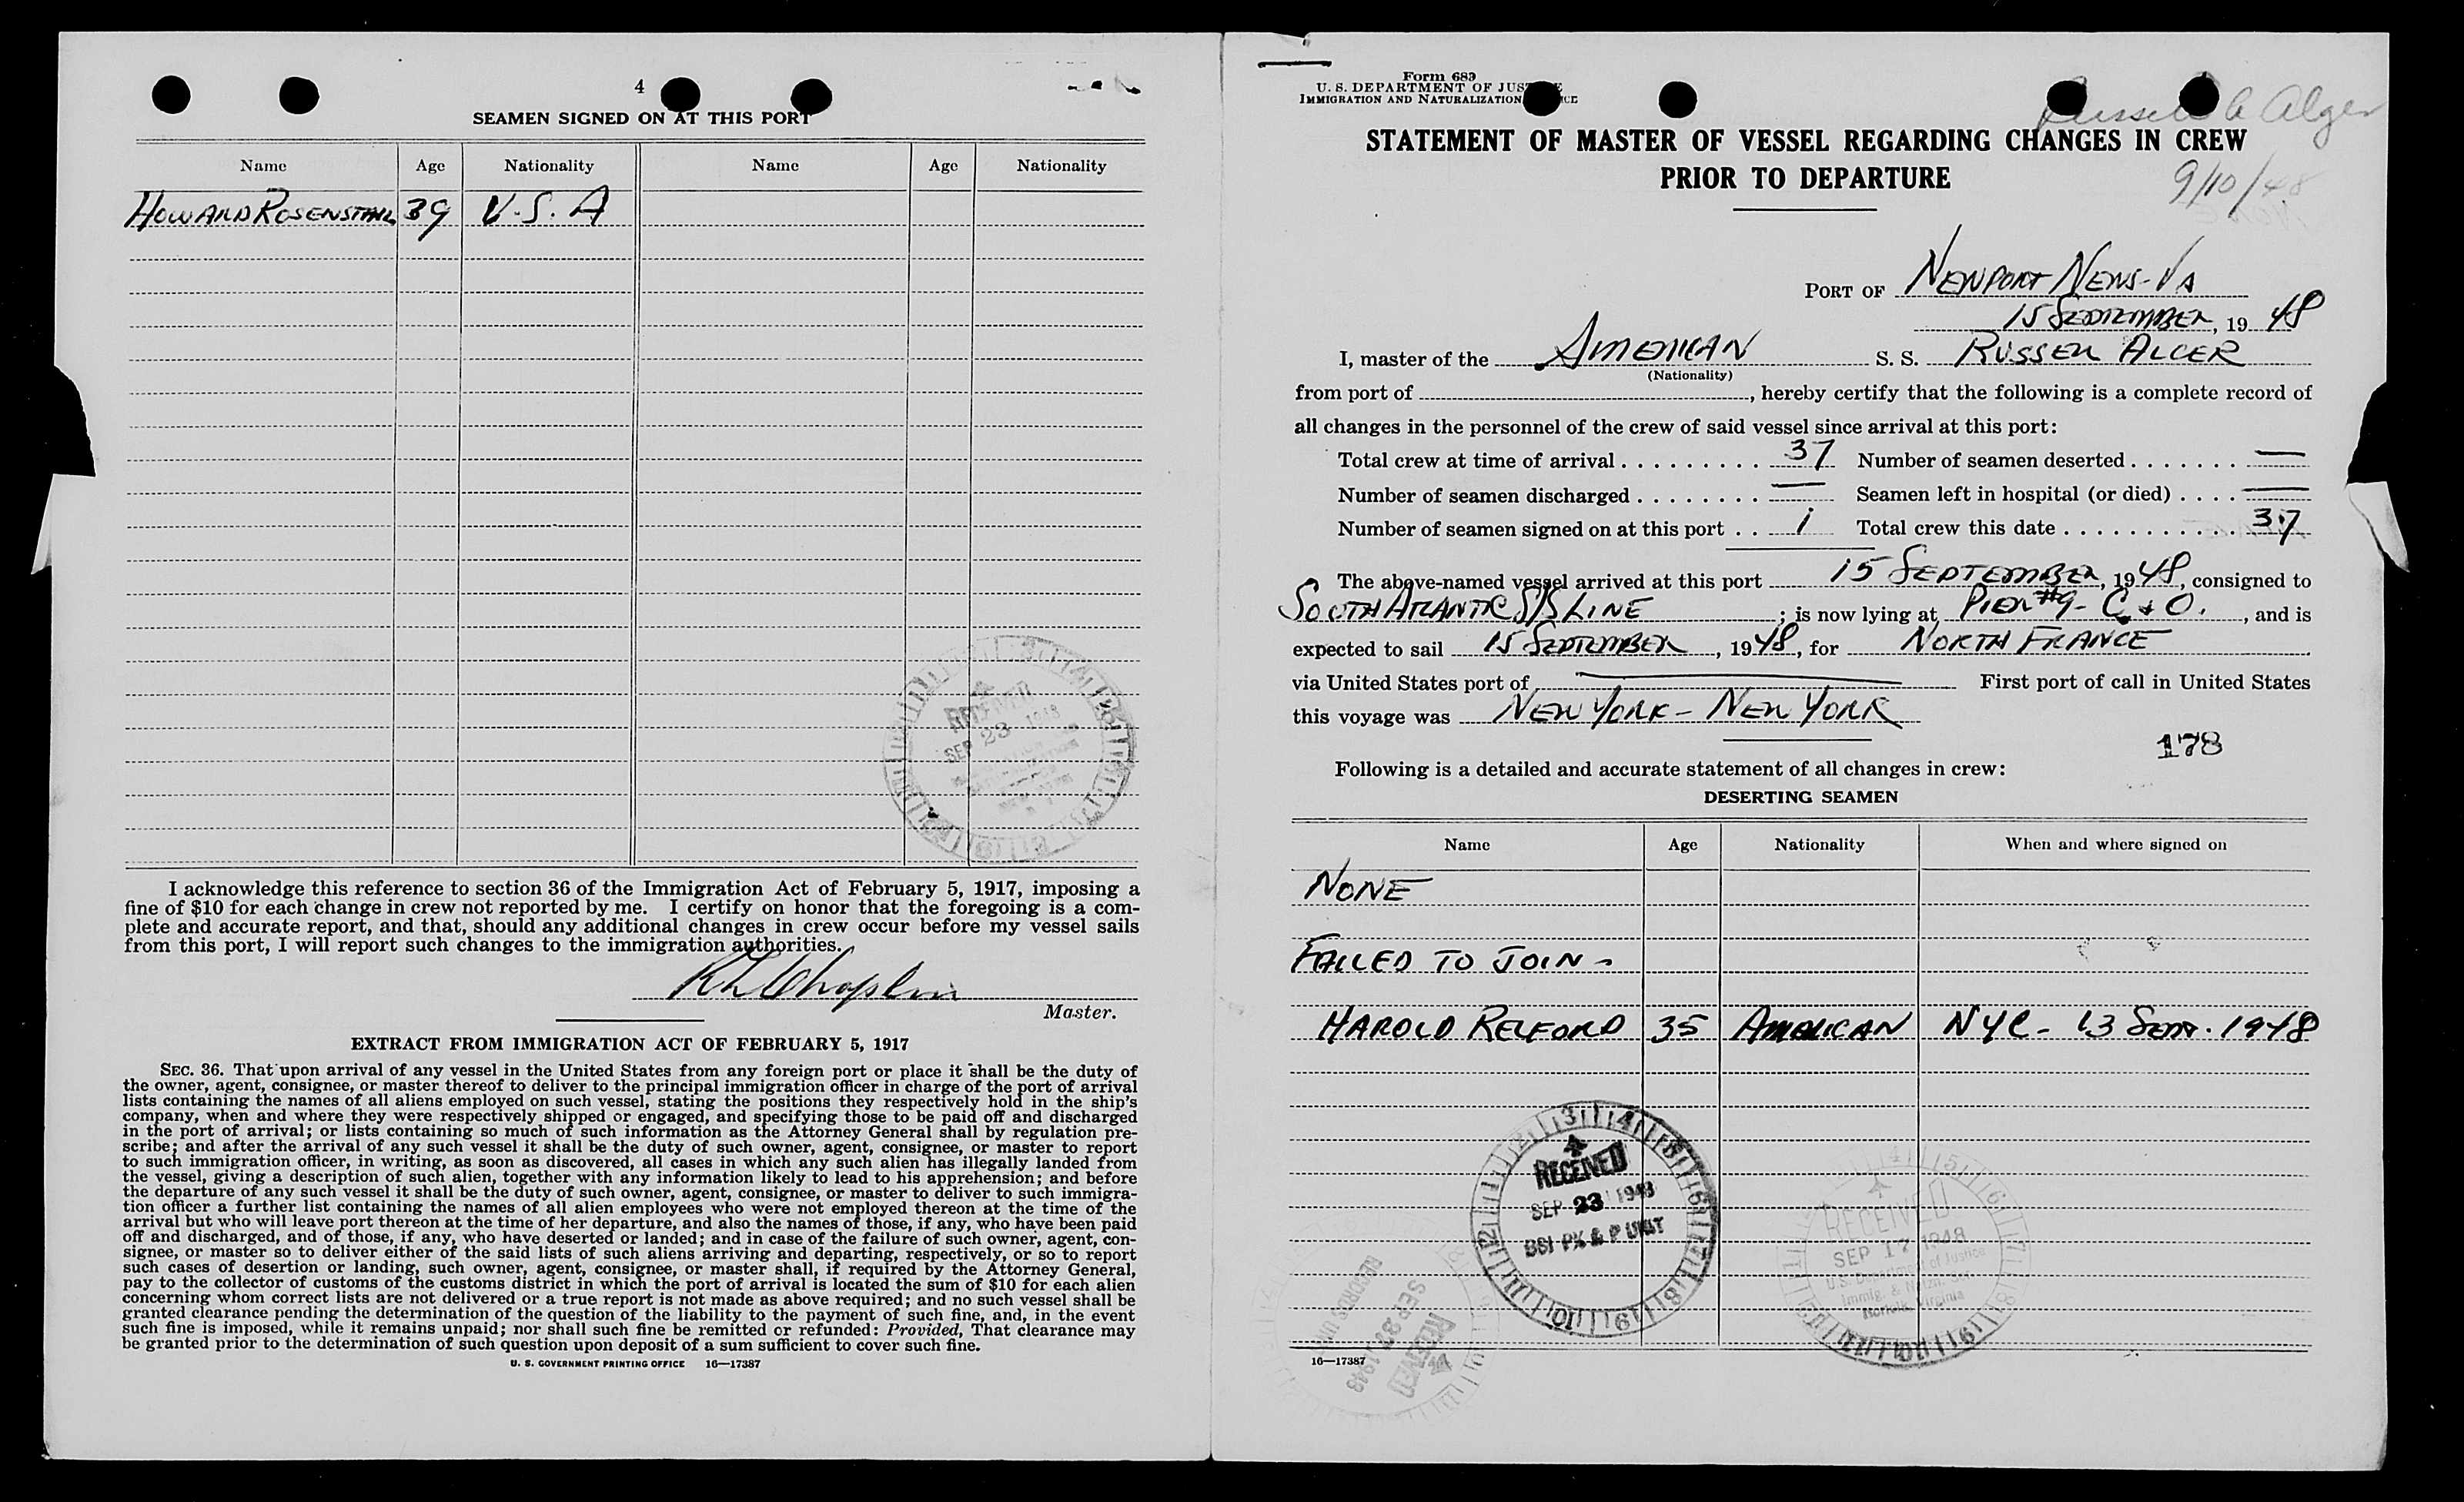 4
SEAMEN SIGNED ON AT THIS PORT
Name Age Nationality Name Age Nationality
HOWARD ROSENSTAHL 39 U.S.A
I acknowledge this reference to section 36 of the Immigration Act of February 5, 1917, imposing a
fine of $10 for each change in crew not reported by me. I certify on honor that the foregoing is a com-
plete and accurate report, and that, should any additional changes in crew occur before my vessel sails
from this port, I will report such changes to the immigration authorities.
R L Chaplin
Master.
EXTRACT FROM IMMIGRATION ACT OF FEBRUARY 5, 1917
SEC. 36. That upon arrival of any vessel in the United States from any foreign port or place it shall be the duty of
the owner, agent, consignee, or master thereof to deliver to the principal immigration officer in charge of the port of arrival
lists containing the names of all aliens employed on such vessel, stating the positions they respectively hold in the ship's
company, when and where they were respectively shipped or engaged, and specifying those to be paid off and discharged
in the port of arrival; or lists containing so much of such information as the Attorney General shall by regulation pre-
scribe; and after the arrival of any such vessel it shall be the duty of such owner, agent, consignee, or master to report
to such immigration officer, in writing, as soon as discovered, all cases in which any such alien has illegally landed from
the vessel, giving a description of such alien, together with any information likely to lead to his apprehension; and before
the departure of any such vessel it shall be the duty of such owner, agent, consignee, or master to deliver to such immigra-
tion officer a further list containing the names of all alien employees who were not employed thereon at the time of the
arrival but who will leave port thereon at the time of her departure, and also the names of those, if any, who have been paid
off and discharged, and of those, if any, who have deserted or landed; and in case of the failure of such owner, agent, con-
signee, or master so to deliver either of the said lists of such aliens arriving and departing, respectively, or so to report
such cases of desertion or landing, such owner, agent, consignee, or master shall, if required by the Attorney General,
pay to the collector of customs of the customs district in which the port of arrival is located the sum of $10 for each alien
concerning whom correct lists are not delivered or a true report is not made as above required; and no such vessel shall be
granted clearance pending the determination of the question of the liability to the payment of such fine, and, in the event
such fine is imposed, while it remains unpaid; nor shall such fine be remitted or refunded: Provided, That clearance may
be granted prior to the determination of such question upon deposit of a sum sufficient to cover such fine.
U. S. GOVERNMENT PRINTING OFFICE 16—17387
RECEIVED
SEP 23 1948
Form 689
U. S. DEPARTMENT OF JUSTICE
IMMIGRATION AND NATURALIZATION
Russell A Alger
9/10/48
STATEMENT OF MASTER OF VESSEL REGARDING CHANGES IN CREW
PRIOR TO DEPARTURE
PORT OF NEWPORT NEWS-VA
15 SEPTEMBER, 19 48
I, master of the AMERICAN S. S. RUSSELL ALGER
(Nationality)
from port of , hereby certify that the following is a complete record of
all changes in the personnel of the crew of said vessel since arrival at this port:
Total crew at time of arrival . . . . . . . . . 37 Number of seamen deserted . . . . . . . —
Number of seamen discharged . . . . . . . . — Seamen left in hospital (or died) . . . . —
Number of seamen signed on at this port . . 1 Total crew this date . . . . . . . . . . . 37
The above-named vessel arrived at this port 15 SEPTEMBER, 1948, consigned to
SOUTH ATLANTIC S/S LINE ; is now lying at PIER #9- C & O. , and is
expected to sail 15 SEPTEMBER , 1948, for NORTH FRANCE
via United States port of — First port of call in United States
this voyage was NEW YORK - NEW YORK
178
Following is a detailed and accurate statement of all changes in crew:
DESERTING SEAMEN
Name Age Nationality When and where signed on
NONE
FAILED TO JOIN -
HAROLD RELFORD 35 AMERICAN NYC - 13 SEPT. 1948
RECEIVED
SEP 23 1948
BSI PX & P UNIT
RECEIVED
SEP 17 1948
U.S. Department of Justice
Immig. & Natzn. Ser.
Norfolk, Virginia
RECEIVED
SEP 27 1948
RECORDS UNIT
16—17387